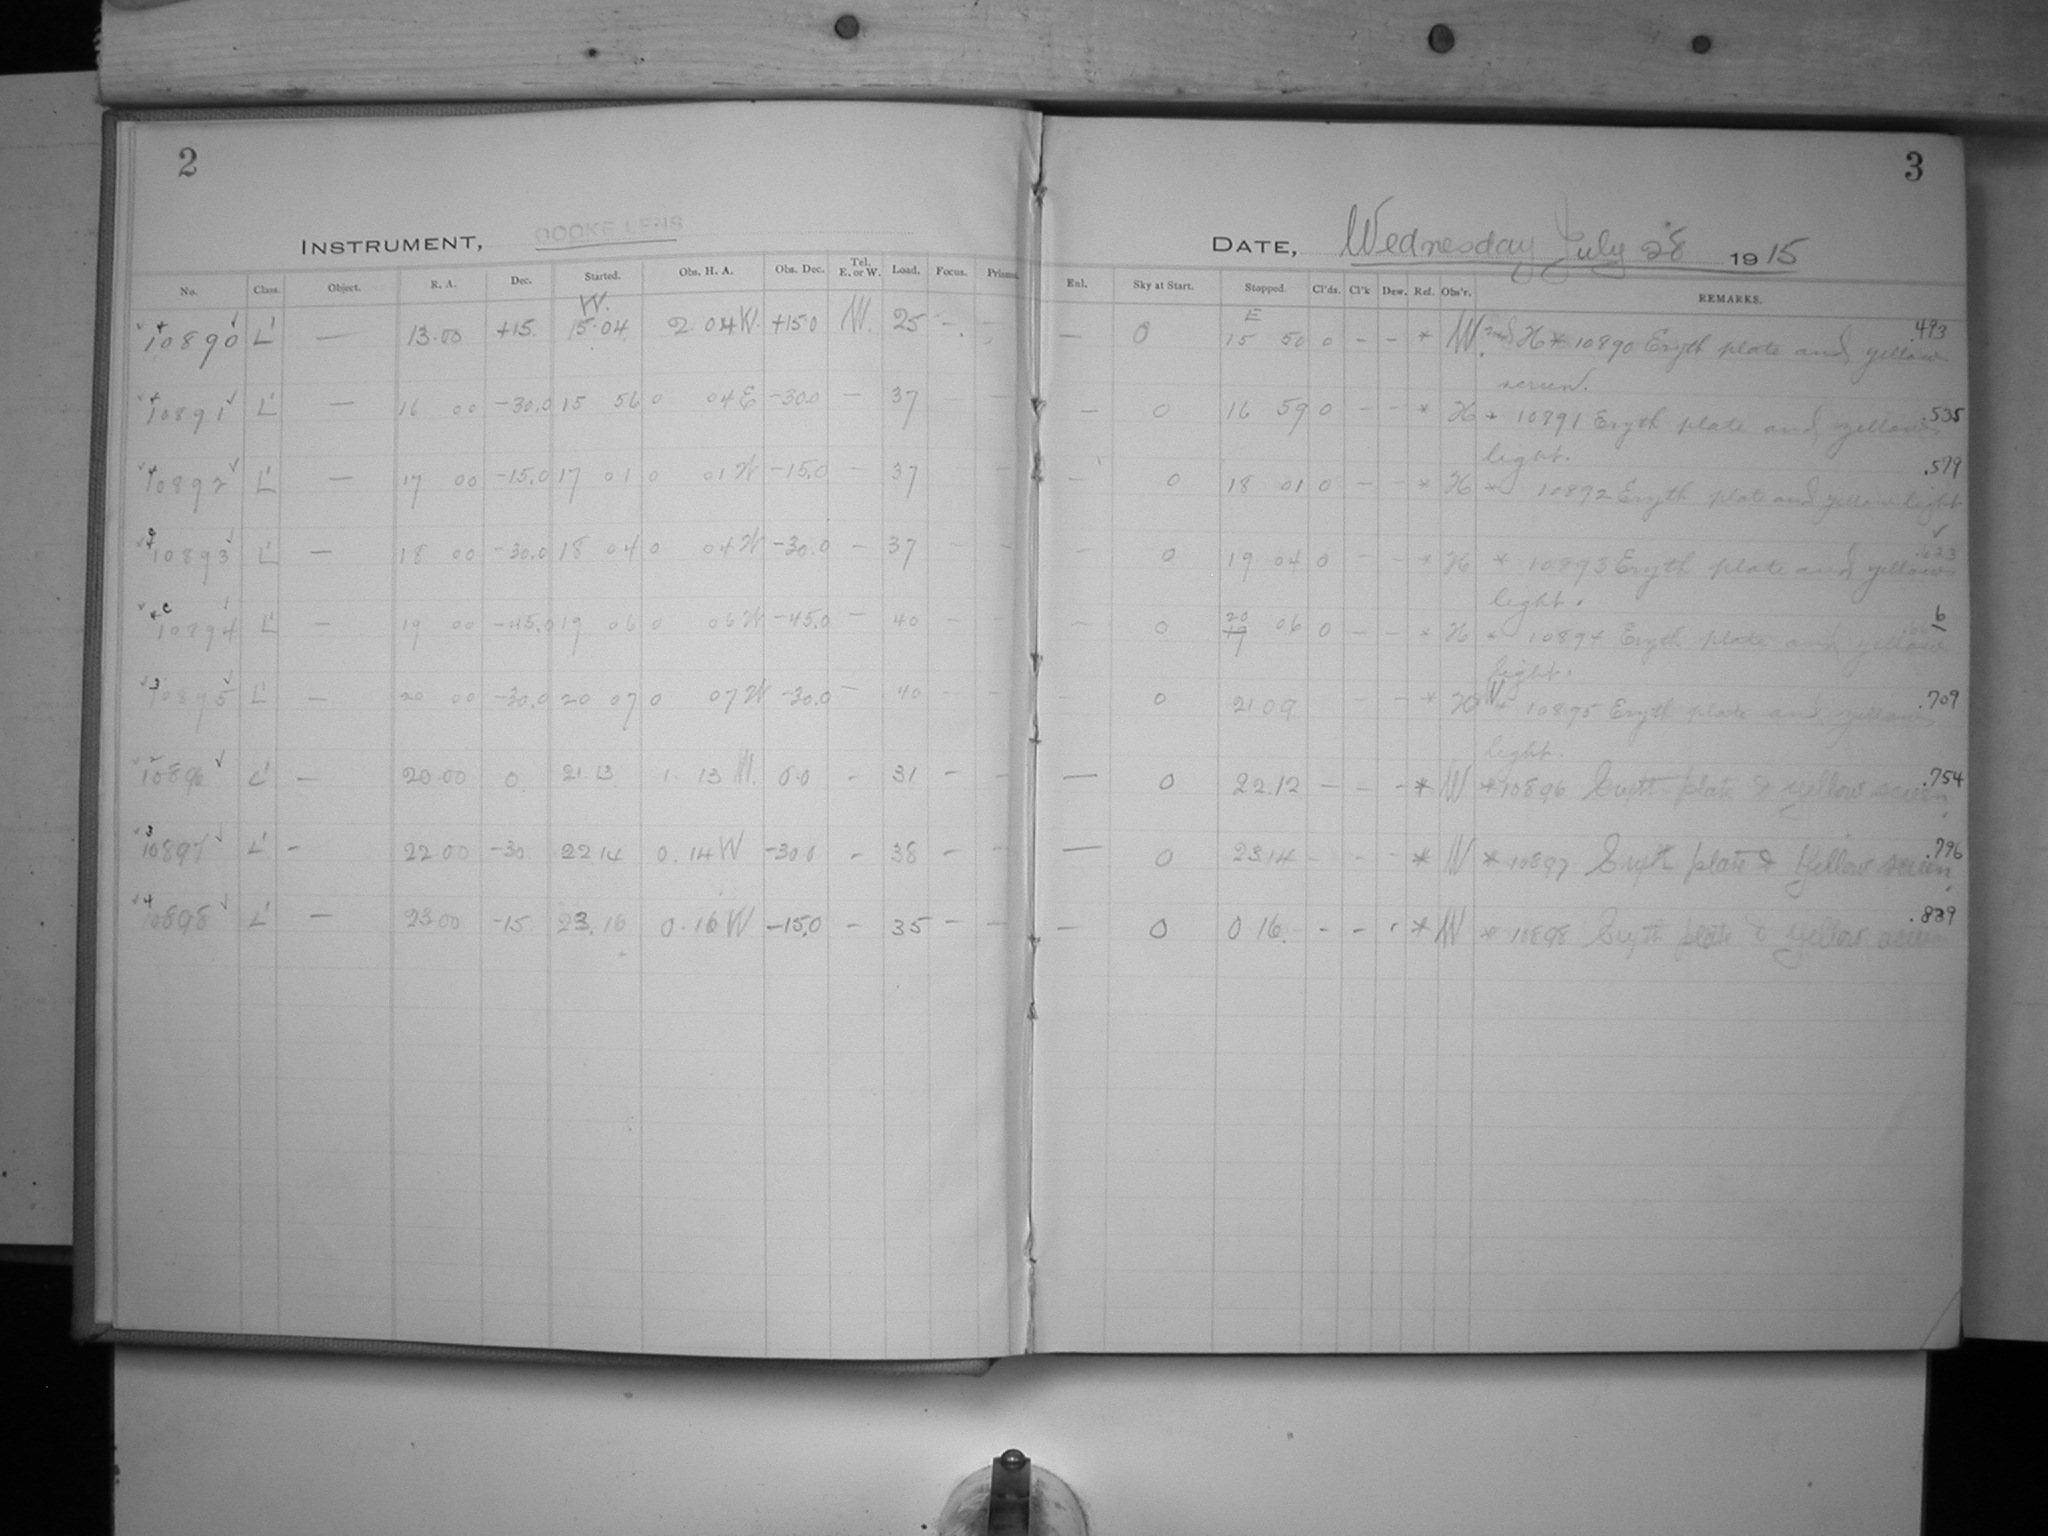 2
3
INSTRUMENT, COOKE LENS
DATE, Wednesday July 28 1915
No. Class. Object. R. A. Dec. Started. Obs. H. A. Obs. Dec. Tel. E. or W. Load. Focus. Prisms. Enl. Sky at Start. Stopped. Cl'ds. Cl'k Dew. Ref. Obs'r. REMARKS.
W. E .493
10890 L' — 13.00 +15. 15.04 2.04 W. +15.0 W. 25 - - — 0 15 50 0 - - * W. and H * 10890 Eryth plate and yellow
screen.
10891 L' — 16 00 -30.0 15 56 0 04 E -30.0 — 37 - - — 0 16 59 0 - - * H * 10891 Eryth plate and yellow .535
light.
.579
10892 L' — 17 00 -15.0 17 01 0 01 W -15.0 - 37 - - — 0 18 01 0 - - * H * 10892 Eryth plat and yellow light
.623
10893 L' — 18 00 -30.0 18 04 0 04 W -30.0 - 37 - - — 0 19 04 0 - - * H * 10893 Eryth plate and yellow
light.
6
10894 L' — 19 00 -45.0 19 06 0 06 W -45.0 — 40 - - — 0 20 06 0 - - * H * 10894 Eryth plate and yellow
light.
10895 L' — 20 00 -30.0 20 07 0 07 W -30.0 — 40 - - - 0 21 09 - - * H W * 10895 Eryth plate and yellow .709
light.
10896 L' — 20.00 0. 21.13 1. 13 W. 0.0 - 31 - - — 0 22.12 - - - * W * 10896 Eryth plate & yellow screen .754
10897 L' - 22 00 -30 22 14 0.14 W -30.0 - 38 - - — 0 23.14 - - - * W * 10897 Eryth plate & Yellow screen .796
10898 L' — 23.00 -15 23.16 0.16 W -15.0 - 35 - - — 0 0 16. - - - * W * 10898 Eryth plate & Yellow screen .839